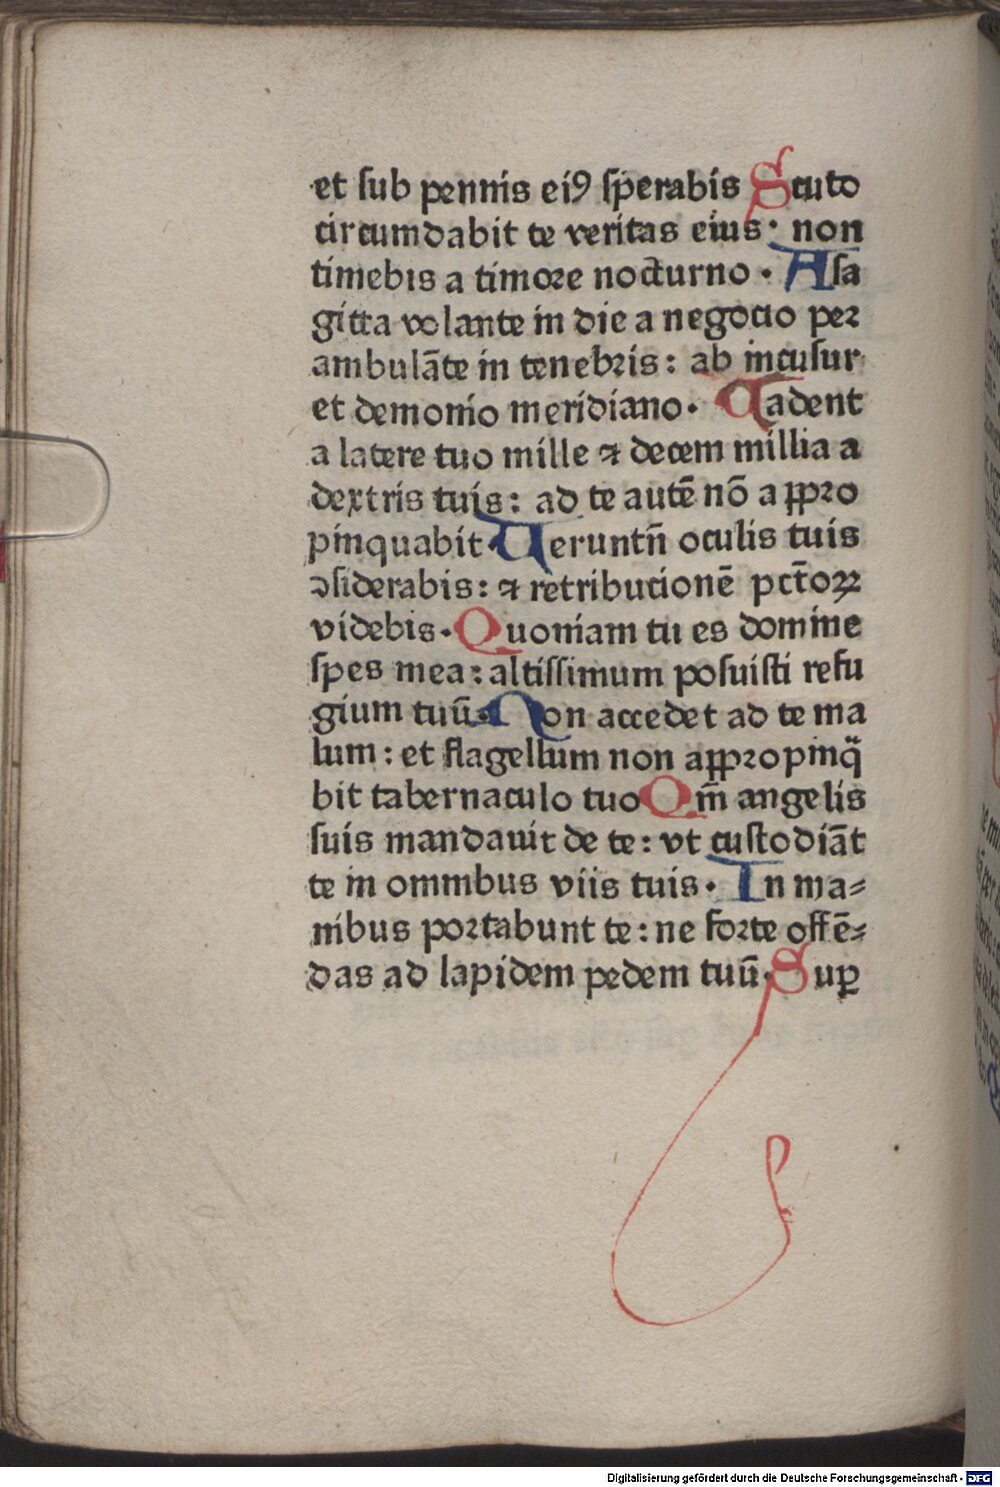 et sub pennis ei9 sperabis Scuto
circumdabit te veritas eius· non
timebis a timore nocturno · A sa
gitta volante in die a negocio per
ambulāte in tenebris: ab incursur
et demonio meridiano· Cadent
a latere tuo mille ⁊ decem millia a
dextris tuis: ad te autē nō appro
pinquabit· Ueruntñ oculis tuis
ↄsiderabis: ⁊ retributionē pct̄oꝝ
videbis· Quoniam tu es domine
spes mea: altissimum posuisti refu
gium tuū· Non accedet ad te ma
lum: et flagellum non appropinq̄
bit tabernaculo tuo Qm̄ angelis
suis mandauit de te: vt custodiāt
te in omnibus viis tuis· In ma⸗
nibus portabunt te: ne forte offē⸗
das ad lapidem pedem tuū· Suꝑ
Digitalisierung gefördert durch die Deutsche Forschungsgemeinschaft - DFG